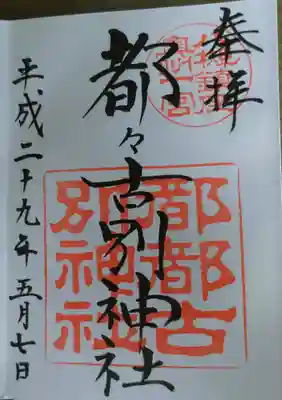 奉拝
都々古別神社
平成二十九年五月七日
都都古
別神社
一宮